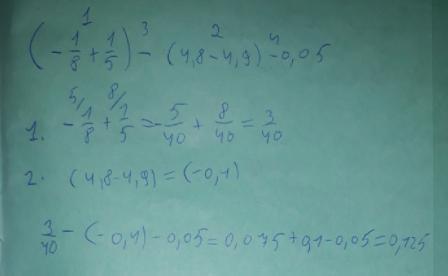 1 3 2 4
(-1/8 + 1/5) - (4,8-4,9) -0,05
5/ 8/
1. -1/8 + 1/5 = -5/40 + 8/40 = 3/40
2. (4,8-4,9) = (-0,1)
3/40 - (-0,1) - 0,05 = 0,075 + 0,1 - 0,05 = 0,125